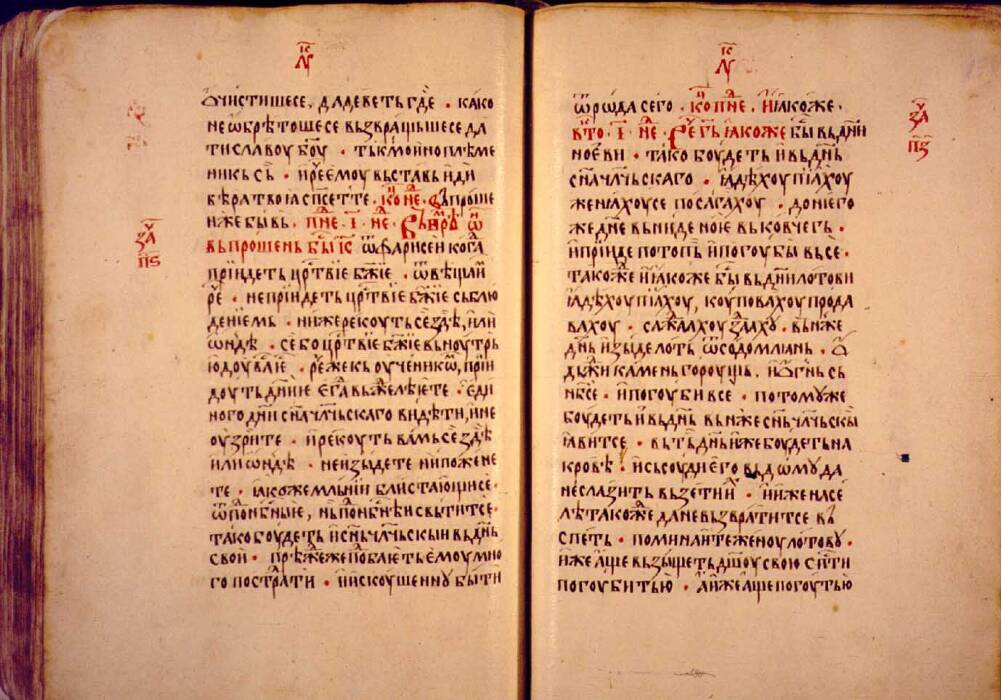 лꙋ
очистише се, да деветь где · како
не ѡбрѣтоше се възвращьше се да
ти славоу боу · тькмо инопле́ме
никь сь · и рече емоу въставь иди
вѣра твоꙗ спсе те · ко не ·
ниже бывь · пне · і · не ·
въпрошень бы іс ѿ фарисеи когда
прїидеть црⷭ҇твїе бжїе · ѿвѣщаи
рече · не прїидеть црⷭ҇твїе бжїе сь блю
денїемь · ни же рекоуть се зде, или
ѡнде · се бо црⷭ҇твїе бжїе вьноутрь
рече же кь оученикѡм, прїи
доуть днїе егда вьжелѣете · еди
ного дни сна члчьскаго видѣти, и не
оузрите · и рекоуть вамь се зде
или ѡнде · не изыдете ни пожене
те · ꙗкоже мльнїи блистающи се ·
тако боудеть и снь члчьскыи вь днь
свои · прѣжⷣе же подобаеть емоу мно
го пострⷣати · и искоушенноу быти
за
пѕ
лꙋ
ѿ рѡда сего · ко пне · И ꙗкоже ·
вто · і · не · Рече гь ꙗкоже бы вь дни
ноеви · тако боудеть и вь днь
сна члчьскаго · ꙗдѣхоу пїахоу
женꙗхоу се посагахоу · до него
же дне вьниде ное вь ковчегь ·
и прїиде потопь и погоуби все ·
такожⷣе и ꙗкоже бы вь дни лотови
ꙗдѣхоу пїахоу, коуповахоу прода
вахоу · саждахоу здахꙋ · вь нже
днь изыде лоть ѿ содомлꙗнь · ѡ
дьжди камень гороущь, и ѡгнь сь
нбсе · и погоуби все · по томꙋже
боудеть и вь днь вь нже снь члчьскы
ꙗвит се · вь ть днь иже боудеть на
кровѣ · и сьсоуди его вь дѡмꙋ да
не слазить възети их · и иже на се
лѣ такожⷣе да не възвратит се вь
спеть · поминаите женоу лотовꙋ ·
иже аще възыщеть дшоу свою спⷭ҇ти
погоубить ю · а иже аще погоубить ю
за
пз